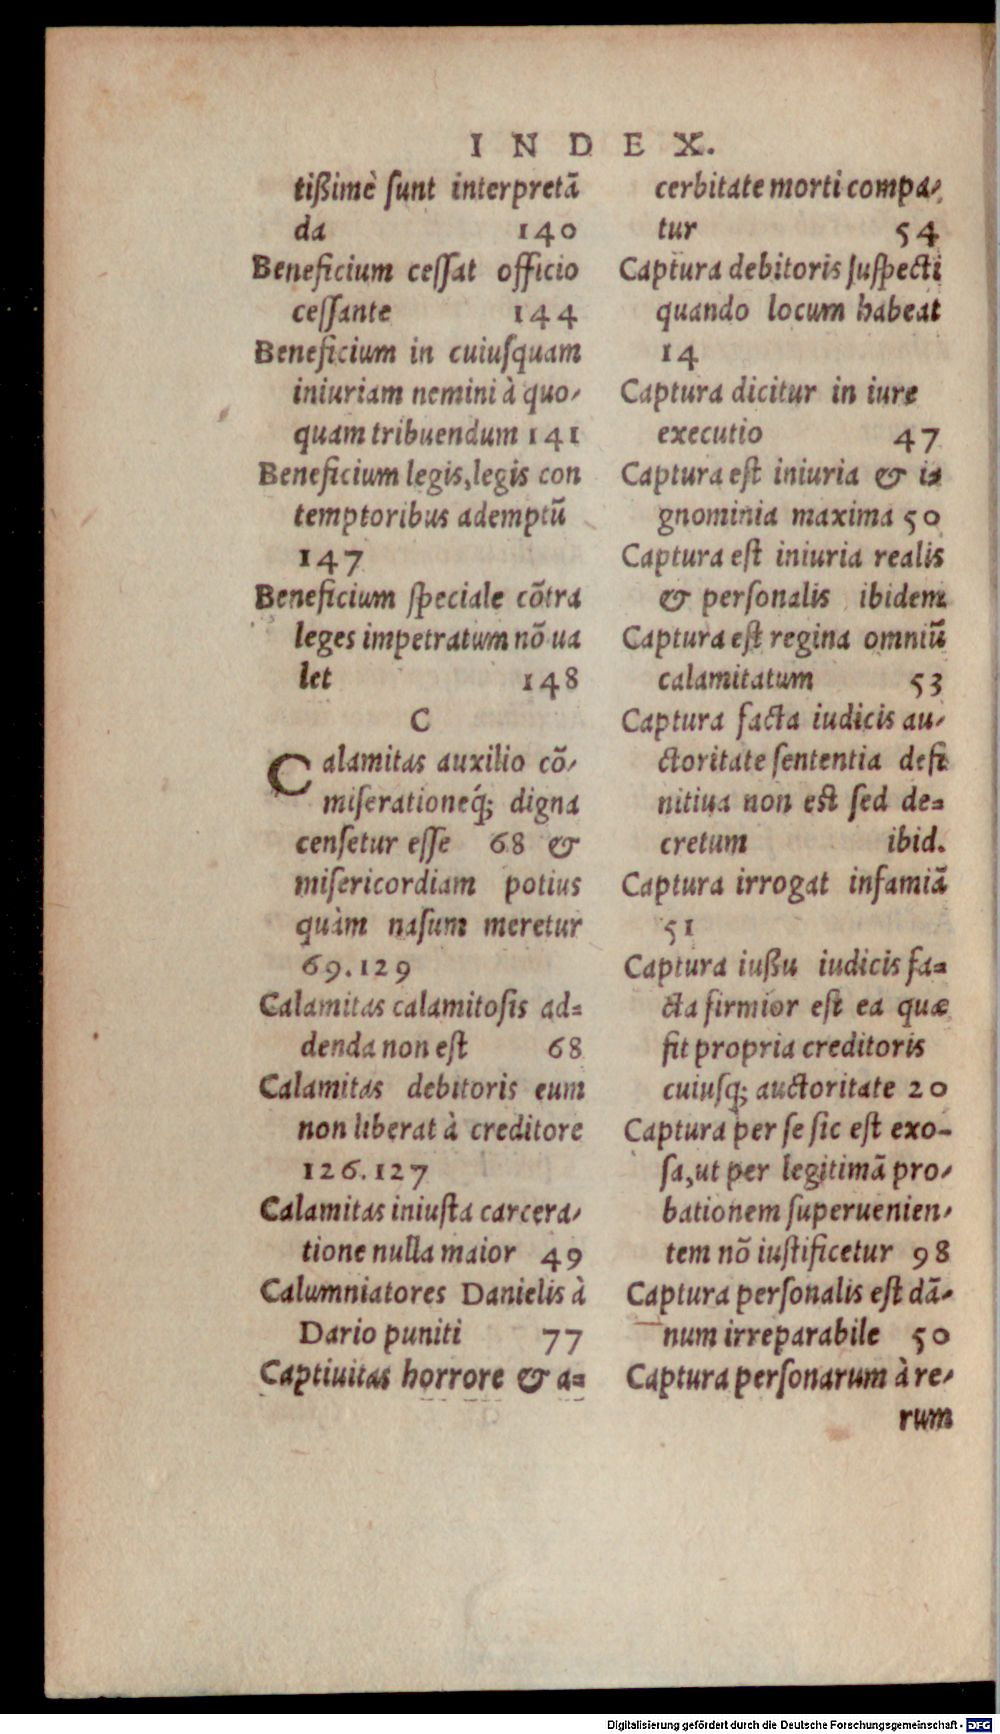 INDEX.
tißimè sunt interpretā
da 140
Beneficium cessat officio
cessante 144
Beneficium in cuiusquam
iniuriam nemini à quo-
quam tribuendum 141
Beneficium legis, legis con
temptoribus ademptū
147
Beneficium speciale cōtra
leges impetratum nō ua
let 148
C
Calamitas auxilio cō-
miserationeq́; digna
censetur esse 68 &
misericordiam potius
quàm nasum meretur
69.129
Calamitas calamitosis ad=
denda non est 68
Calamitas debitoris eum
non liberat à creditore
126.127
Calamitas iniusta carcera-
tione nulla maior 49
Calumniatores Danielis à
Dario puniti 77
Captiuitas horrore & a=
cerbitate morti compa-
tur 54
Captura debitoris suspecti
quando locum habeat
14
Captura dicitur in iure
executio 47
Captura est iniuria & i=
gnominia maxima 50
Captura est iniuria realis
& personalis ibidem
Captura est regina omniū
calamitatum 53
Captura facta iudicis au-
ctoritate sententia defi
nitiua non est sed de=
cretum ibid.
Captura irrogat infamiā
51
Captura iußu iudicis fa=
cta firmior est ea quæ
fit propria creditoris
cuiusq; auctoritate 20
Captura per se sic est exo-
sa, ut per legitimā pro-
bationem superuenien-
tem nō iustificetur 98
Captura personalis est dā-
num irreparabile 50
Captura personarum à re-
rum
Digitalisierung gefördert durch die Deutsche Forschungsgemeinschaft - DFG